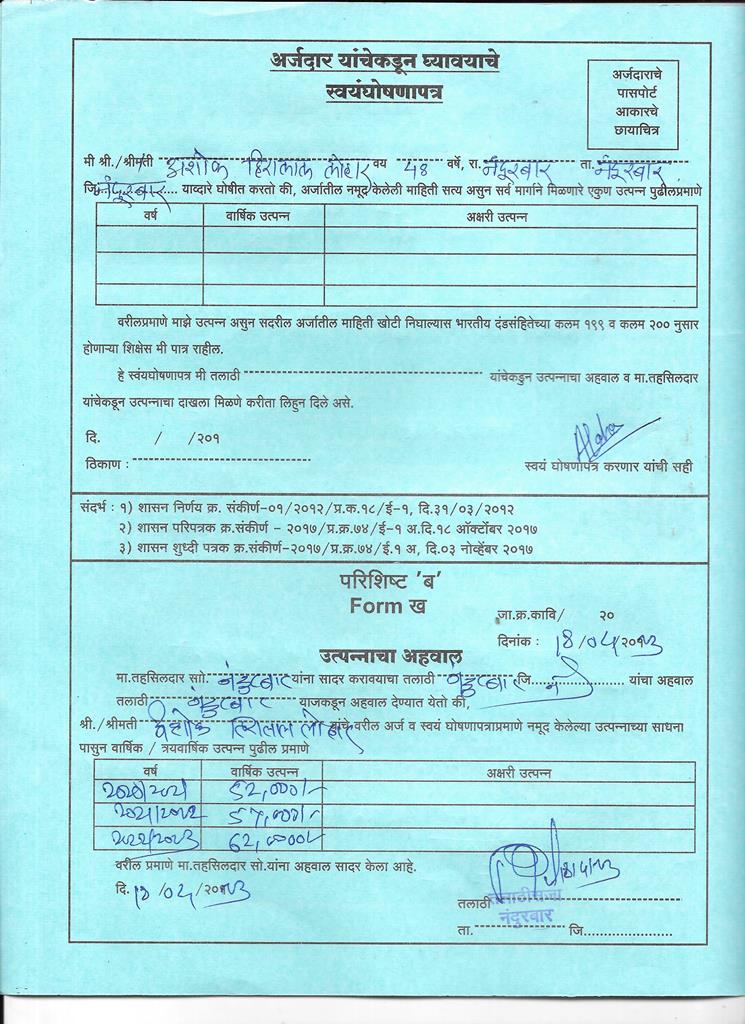 अर्जदार यांचेकडून घ्यावयाचे
स्वयंघोषणापत्र
अर्जदाराचे
पासपोर्ट
आकारचे
छायाचित्र
मी श्री./श्रीमती अशोक हिरालाल लोहार वय ४८ वर्षे, रा. नंदूरबार ता. नंदूरबार
जि. नंदूरबार.... याव्दारे घोषीत करतो की, अर्जातील नमूद केलेली माहिती सत्य असुन सर्व मार्गाने मिळणारे एकुण उत्पन्न पुढीलप्रमाणे
वर्ष वार्षिक उत्पन्न अक्षरी उत्पन्न
वरीलप्रमाणे माझे उत्पन्न असुन सदरील अर्जातील माहिती खोटी निघाल्यास भारतीय दंडसंहितेच्या कलम १९९ व कलम २०० नुसार
होणाऱ्या शिक्षेस मी पात्र राहील.
हे स्वंयघोषणापत्र मी तलाठी ---------- यांचेकडुन उत्पनाचा अहवाल व मा.तहसिलदार
यांचेकडून उत्पनाचा दाखला मिळणे करीता लिहुन दिले असे.
दि. / /२०१
ठिकाण : ----------
स्वयं घोषणापत्र करणार यांची सही
संदर्भ : १) शासन निर्णय क्र. संकीर्ण-०१/२०१२/प्र.क.१८/ई-१, दि.३१/०३/२०१२
२) शासन परिपत्रक क्र.संकीर्ण - २०१७/प्र.क्र.७४/ई-१ अ.दि.१८ ऑक्टोंबर २०१७
३) शासन शुध्दी पत्रक क्र.संकीर्ण-२०१७/प्र.क्र.७४/ई.१ अ, दि.०३ नोव्हेंबर २०१७
परिशिष्ट 'ब'
Form ख
जा.क्र.कावि/ २०
दिनांक : /०५/२०२३
उत्पन्नाचा अहवाल
मा.तहसिलदार साो. नंदुरबार यांना सादर करावयाचा तलाठी नंदुरबार जि.......... यांचा अहवाल
तलाठी नंदुरबार याजकडून अहवाल देण्यात येतो की,
श्री./श्रीमती अशोक हिरालाल लोहार यांचे वरील अर्ज व स्वयं घोषणापत्राप्रमाणे नमूद केलेल्या उत्पन्नाच्या साधना
पासुन वार्षिक / त्रयवार्षिक उत्पन पुढील प्रमाणे
वर्ष वार्षिक उत्पन्न अक्षरी उत्पन्न
२०२०/२०२१ ५२,०००/-
२०२१/२०२२ ५७,०००/-
२०२२/२०२३ ६२,०००/-
वरील प्रमाणे मा.तहसिलदार सो.यांना अहवाल सादर केला आहे.
दि. /०५/२०२३
तलाठी तलाठीसजा
नंदुरबार
ता. ---------- जि..........